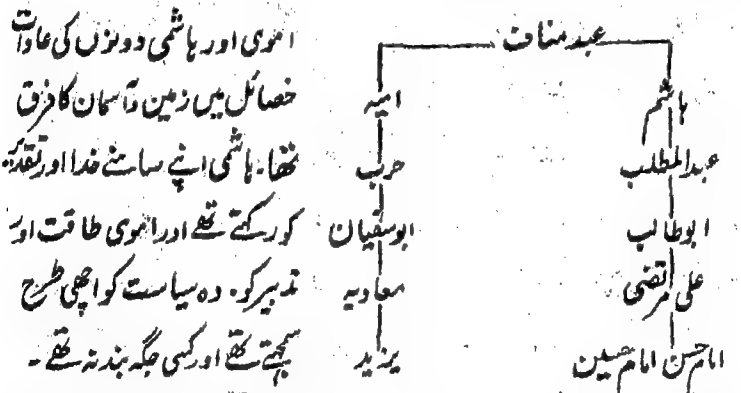 عبد مناف
ہاشم
عبدالمطلب
ابوطالب
علی مرتضیٰ
امام حسن امام حسین
امیہ
حرب
ابوسفیان
معاویہ
یزید
اموی اور ہاشمی دونوں کی عادات
خصائل میں زمین و آسمان کا فرق
تھا۔ ہاشمی اپنے سامنے خدا اور تقدیر
کو رکھتے تھے اور اموی طاقت اور
تدبیر کو۔ وہ سیاست کو اچھی طرح
سمجھتے تھے اور کسی جگہ بند نہ تھے۔